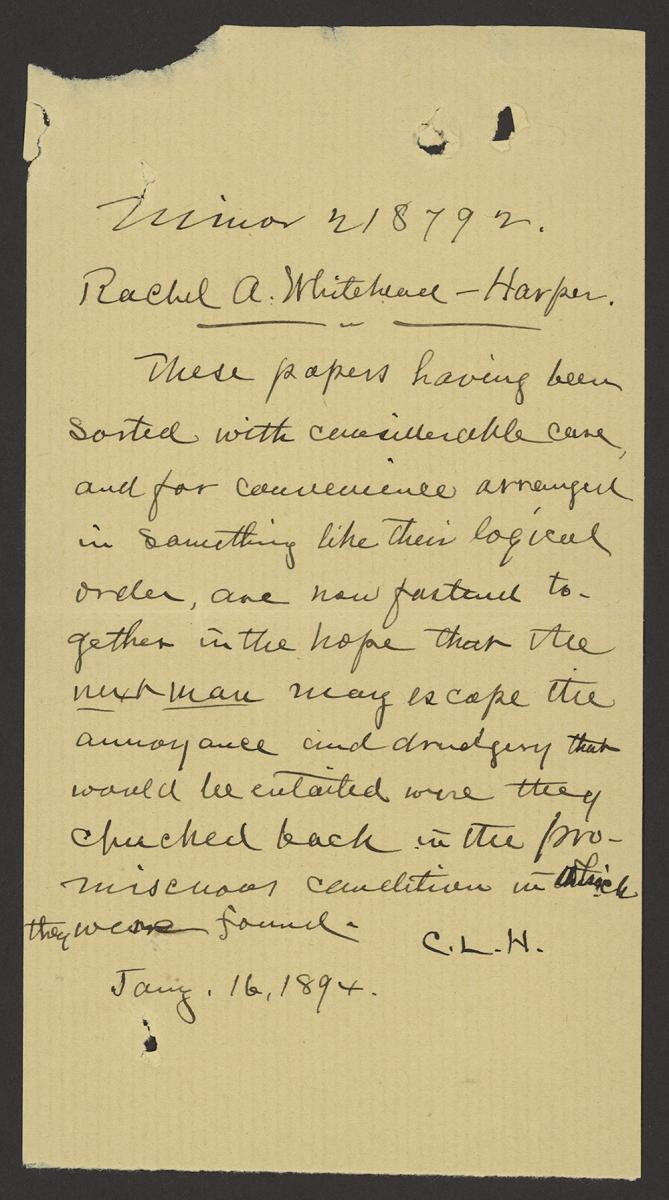 Minor 218792.
Rachel A. Whitehead - Harper.
These papers having been
sorted with considerable care,
and for convenience arranged
in something like their logical
order, are now fastend to-
gether in the hope that the
next man may escape the
annoyance and drudgery that
would be entailed were they
chucked back in the pro-
miscuous condition in which
they were found.
C.L.H.
Jany. 16, 1894.